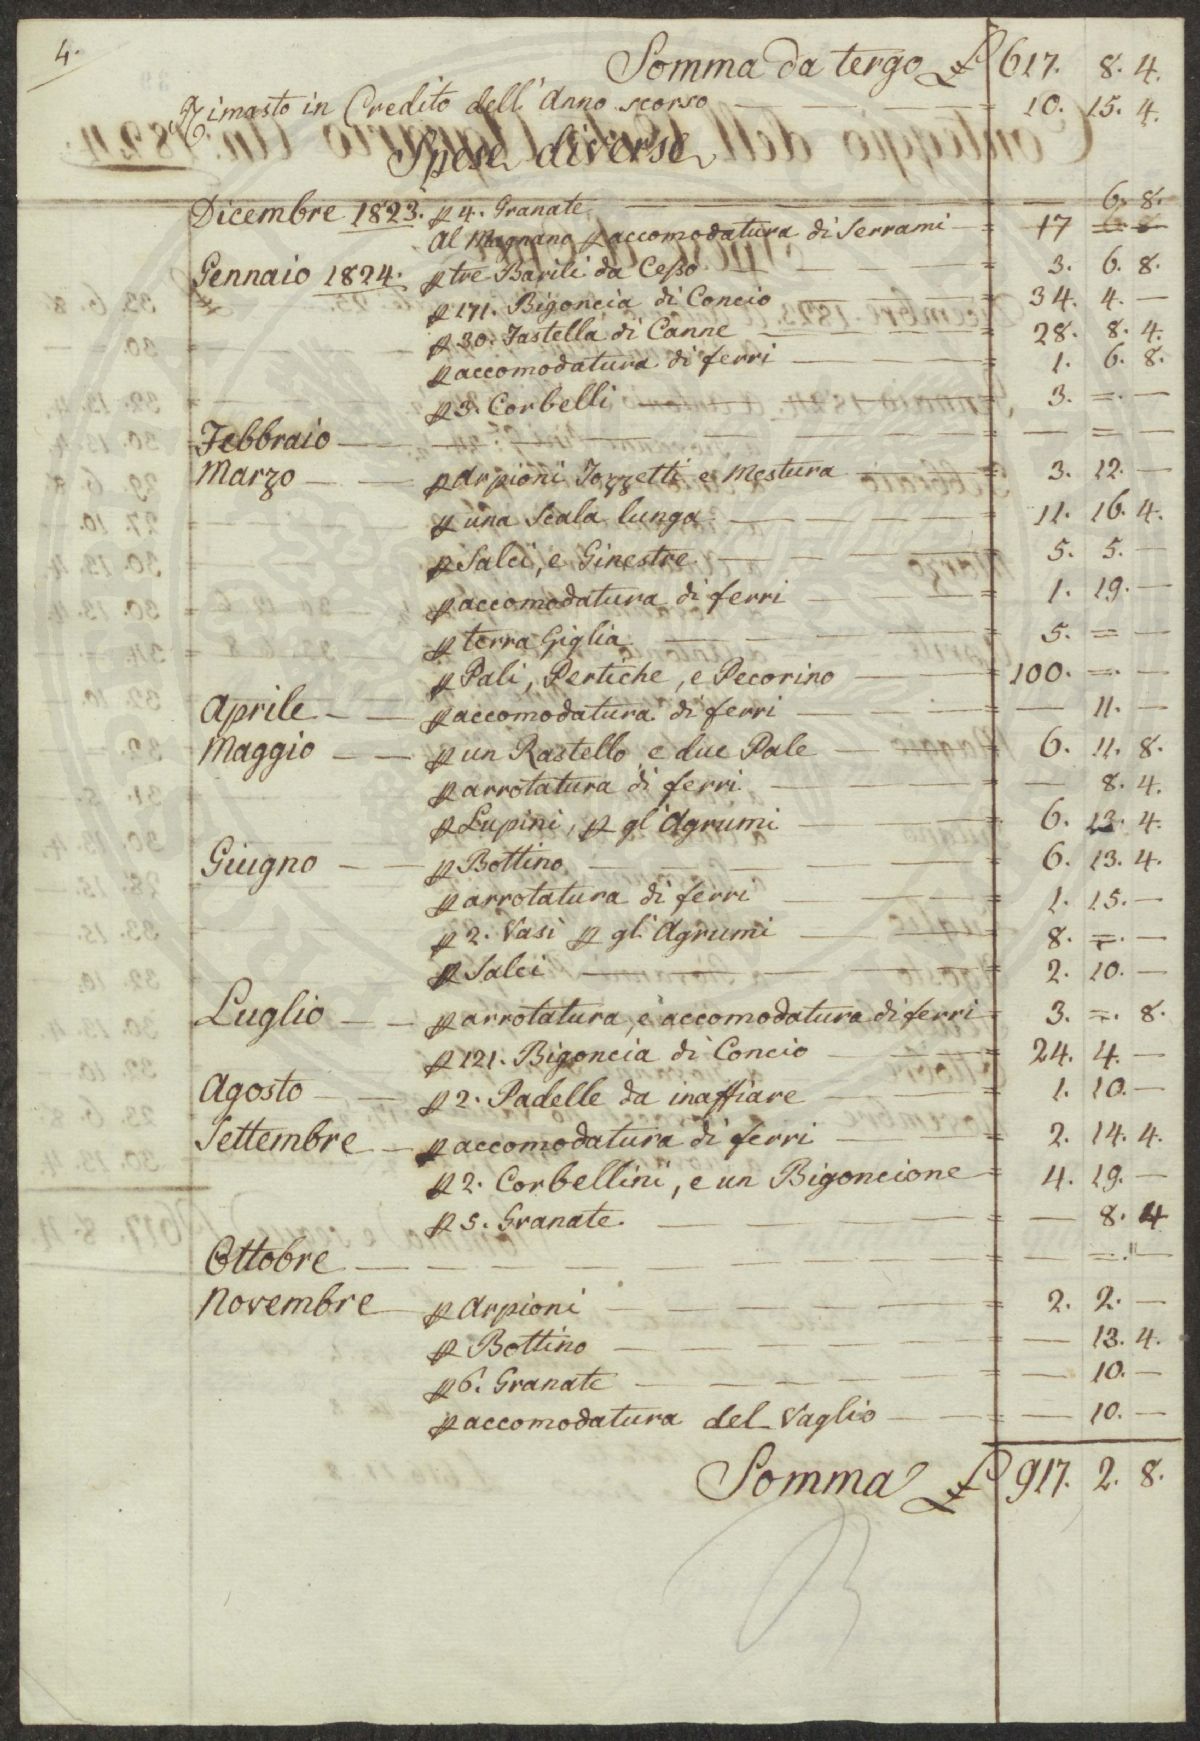 4.
Somma da tergo £ 617. 8. 4.
Rimasto in Credito dell' Anno scorso — 10. 15. 4.
Spese diverse
Dicembre 1823. p 4. Granate — — 6. 8.
Al Magnano p accomodatura di Serrami — 17 = =
Gennaio 1824. p tre Barili da Cesso — 3. 6. 8.
p 171. Bigoncia di Concio — 34. 4. —
p 30. Fastella di Canne — 28. 8. 4.
p accomodatura di ferri — 1. 6. 8.
p 3. Corbelli — 3. =. —
Febbraio — — = —
Marzo — p Arpioni Tozzetti e Mestura — 3. 12. —
p una Scala lunga — 11. 16. 4.
p Salci, e Ginestre — 5. 5. —
p accomodatura di ferri — 1. 19. —
p terra Giglia — 5. = —
p Pali, Pertiche, e Pecorino — 100. =. —
Aprile — p accomodatura di ferri — — 11. —
Maggio — p un Rastello e due Pale — 6. 11. 8.
p arrotatura di ferri — — 8. 4.
p Lupini, p gl' Agrumi — 6. 13. 4.
Giugno — p Bottino — 6. 13. 4.
p arrotatura di ferri — 1. 15. —
p 2. Vasi p gl' Agrumi — 8. =. —
p Salci — 2. 10. —
Luglio — p arrotatura, e accomodatura di ferri 3. =. 8.
p 121. Bigoncia di Concio — 24. 4. —
Agosto — p 2. Padelle da inaffiare — 1. 10. —
Settembre — p accomodatura di ferri — 2. 14. 4.
p 2. Corbellini, e un Bigoncione 4. 19. —
p 5. Granate. — — 8. 4
Ottobre — — =. —
Novembre — p Arpioni — 2. 2. —
p Bottino — — 13. 4.
p 6. Granate — — 10. —
p accomodatura del Vaglio — — 10. —
Somma £ 917. 2. 8.